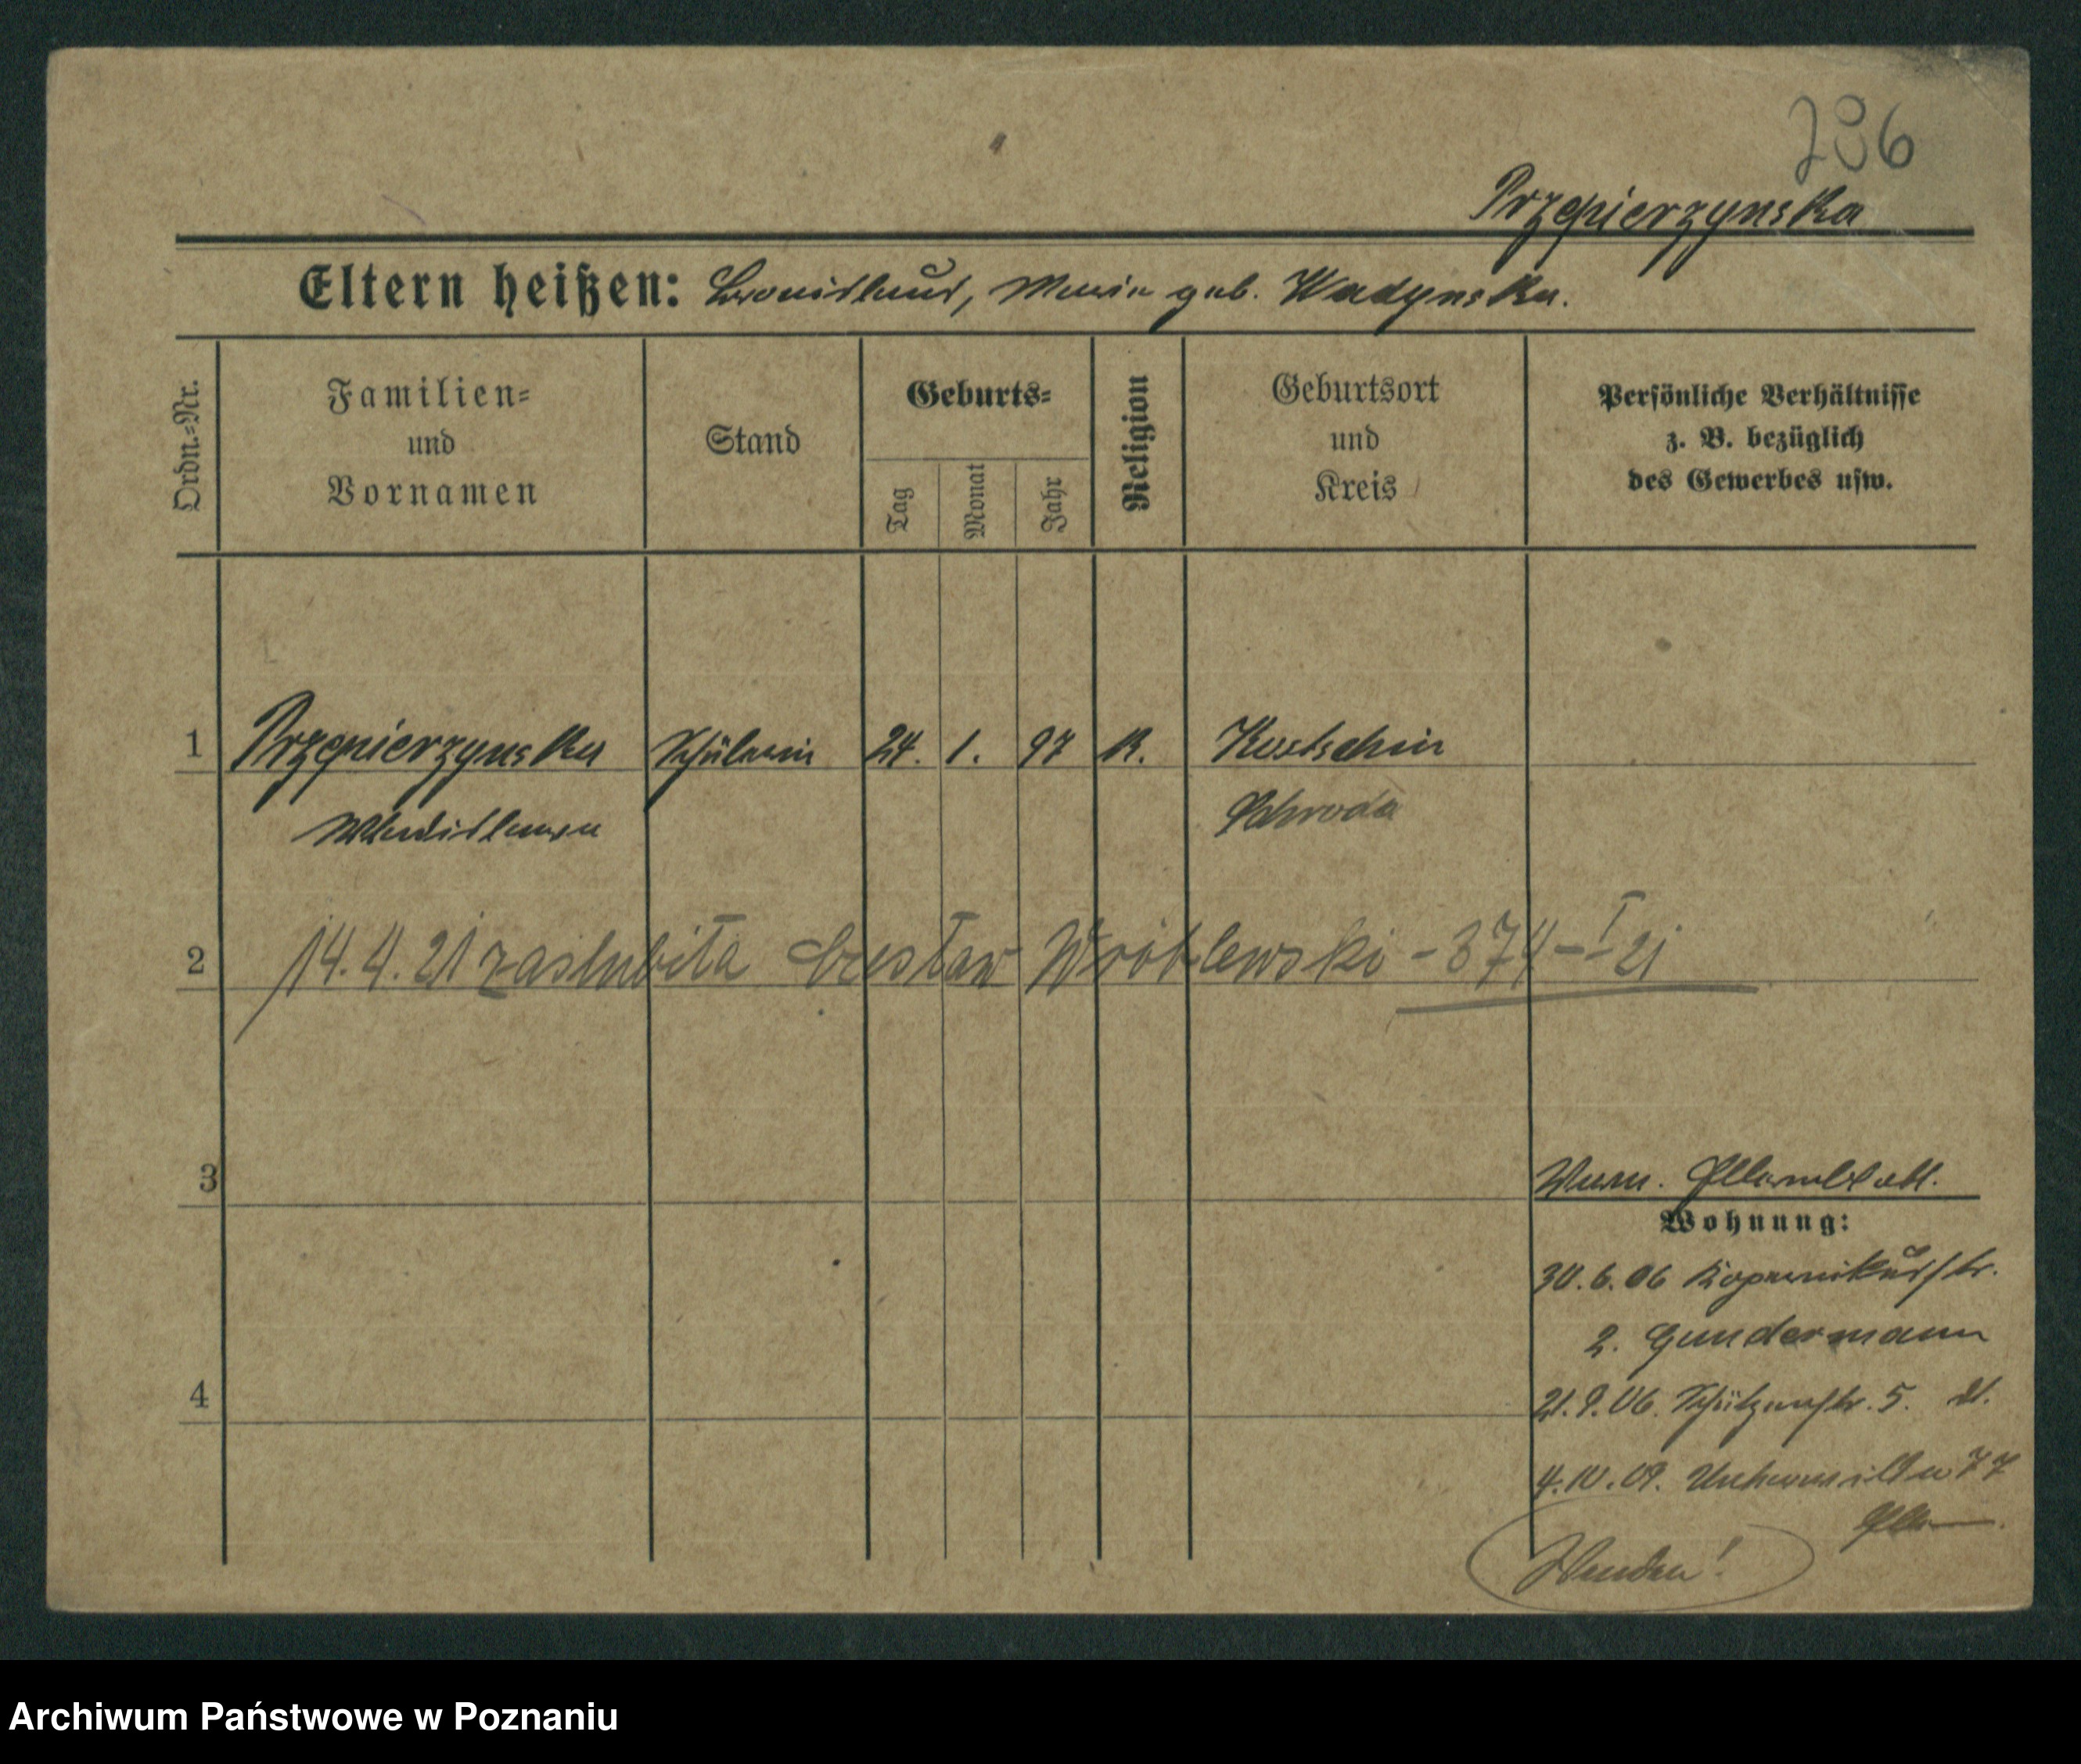 236
Przepierzynska
Eltern heißen: Bronislaus, Maria geb. Wadynska.
Ordn.-Nr.
Familien-
und
Vornamen
Stand
Geburts-
Tag
Monat
Jahr
Religion
Geburtsort
und
Kreis
Persönliche Verhältnisse
z. B. bezüglich
des Gewerbes usw.
1 Przepierzynska Schülerin 24. 1. 97 K. Kostschin
Wladislawa Schroda
2 14.4.21 zaślubiła Czesław Wróblewski - 374 - I 21
3
Wohnung:
30.6.06 Kopernikusstr.
2. Gundermann
4
21.9.06. Schützenstr. 5.
4.10.09. 77
Wenden!
Archiwum Państwowe w Poznaniu